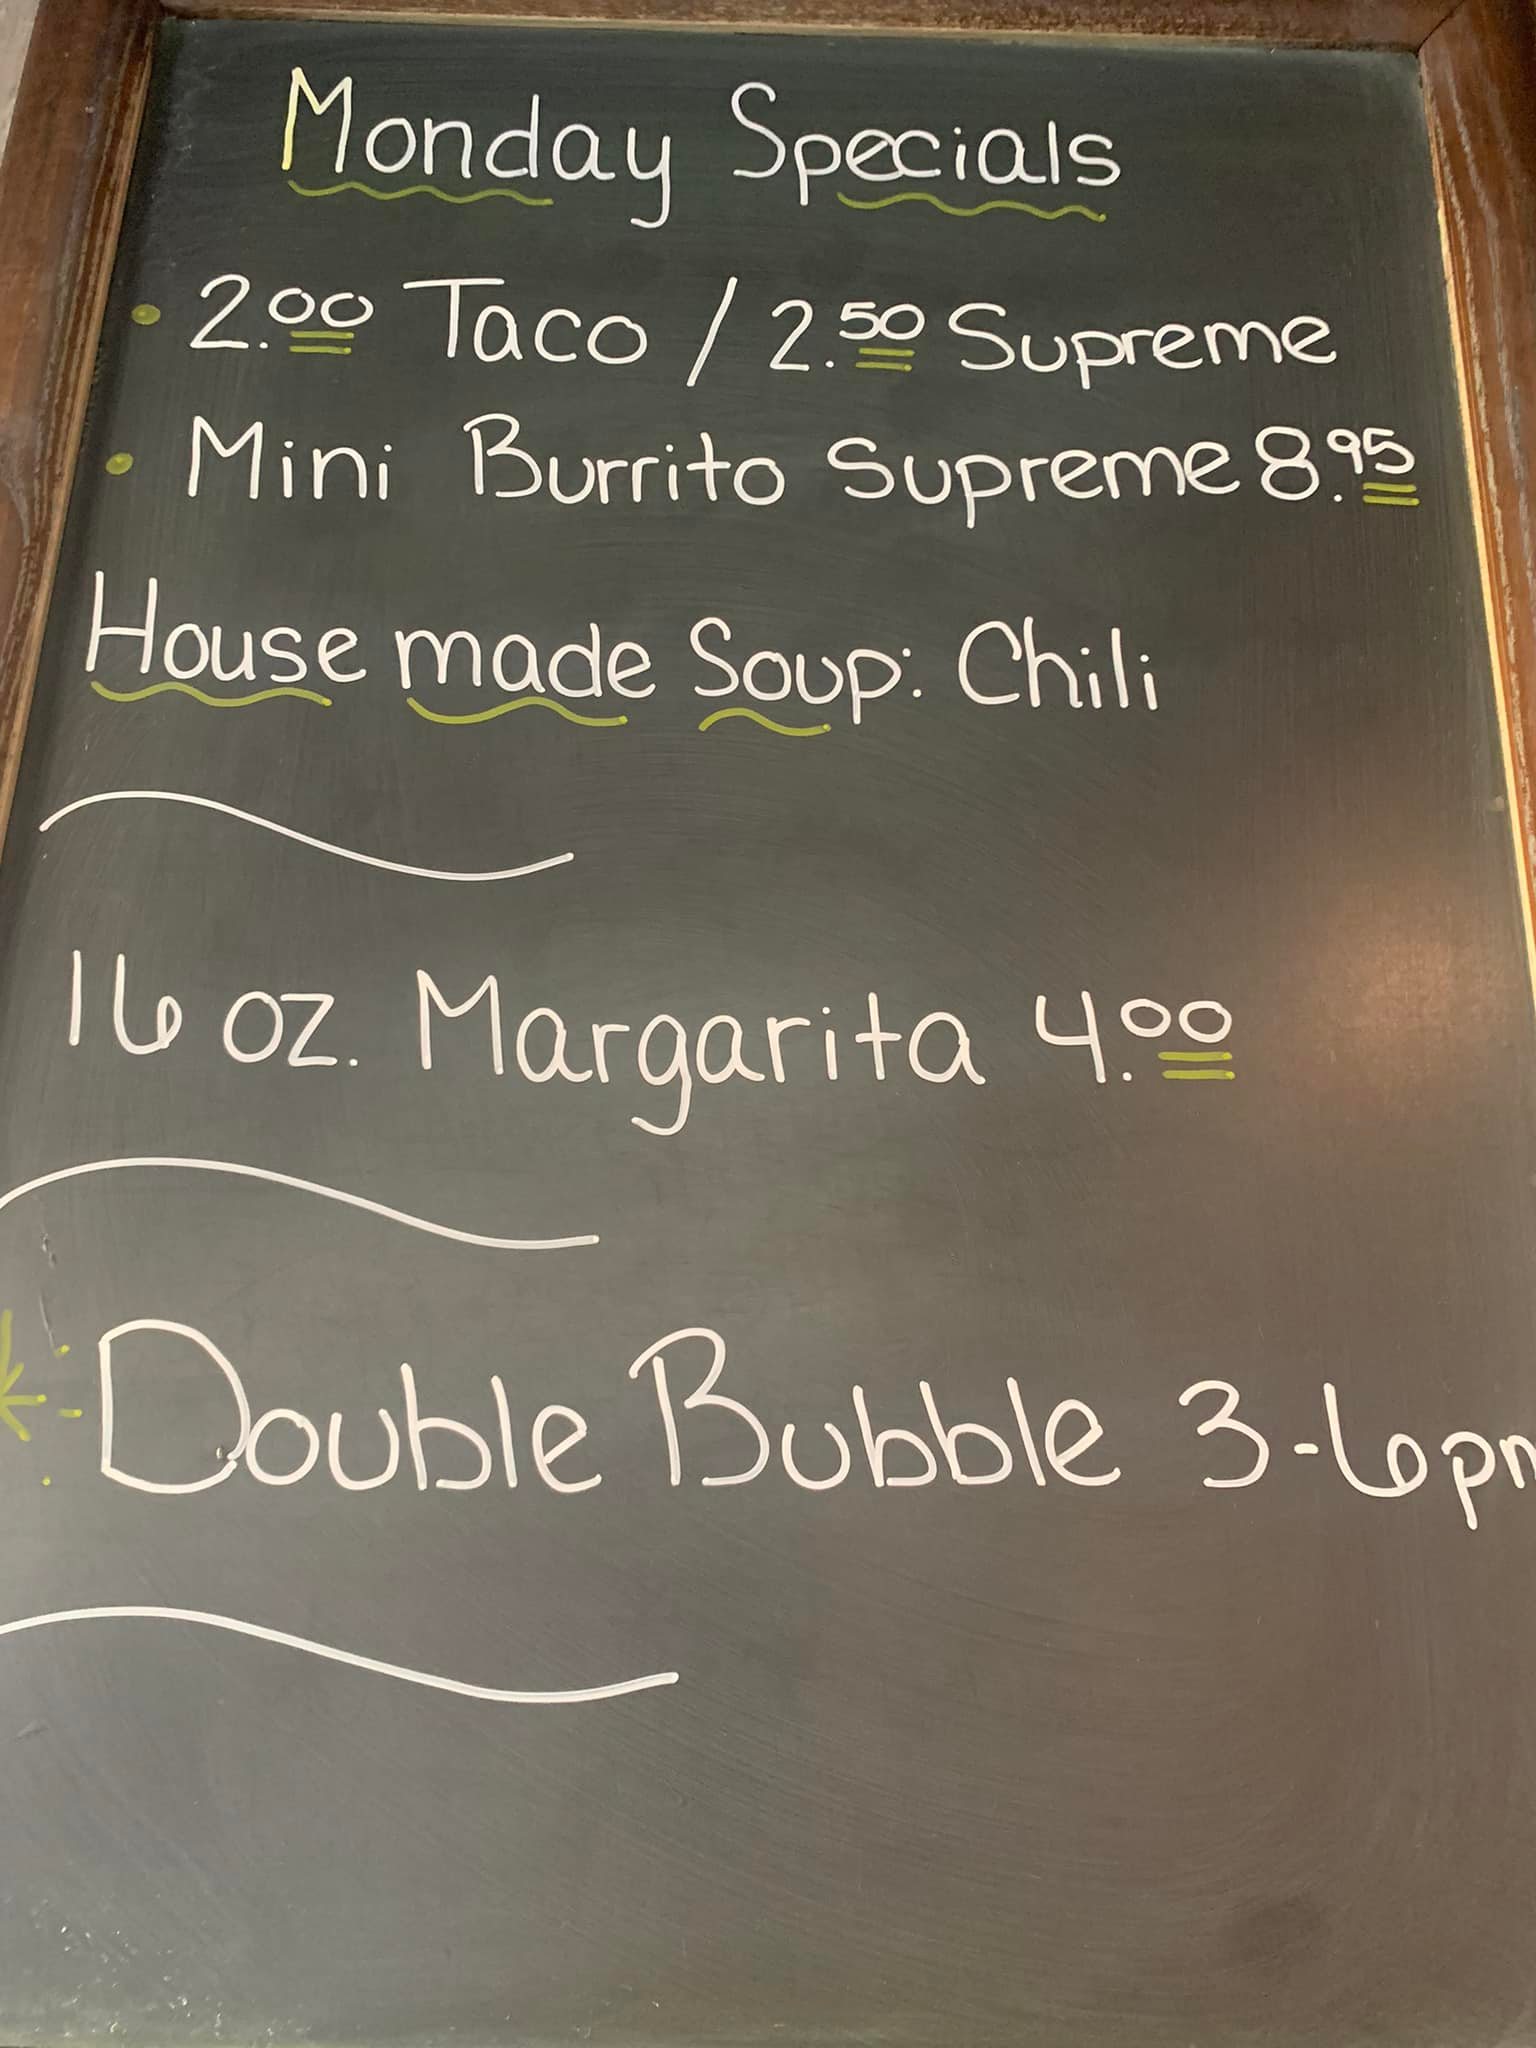 Monday Specials
• 2.00 Taco / 2.50 Supreme
• Mini Burrito Supreme 8.95
House made Soup: Chili
16 oz. Margarita 4.00
Double Bubble 3-6pm